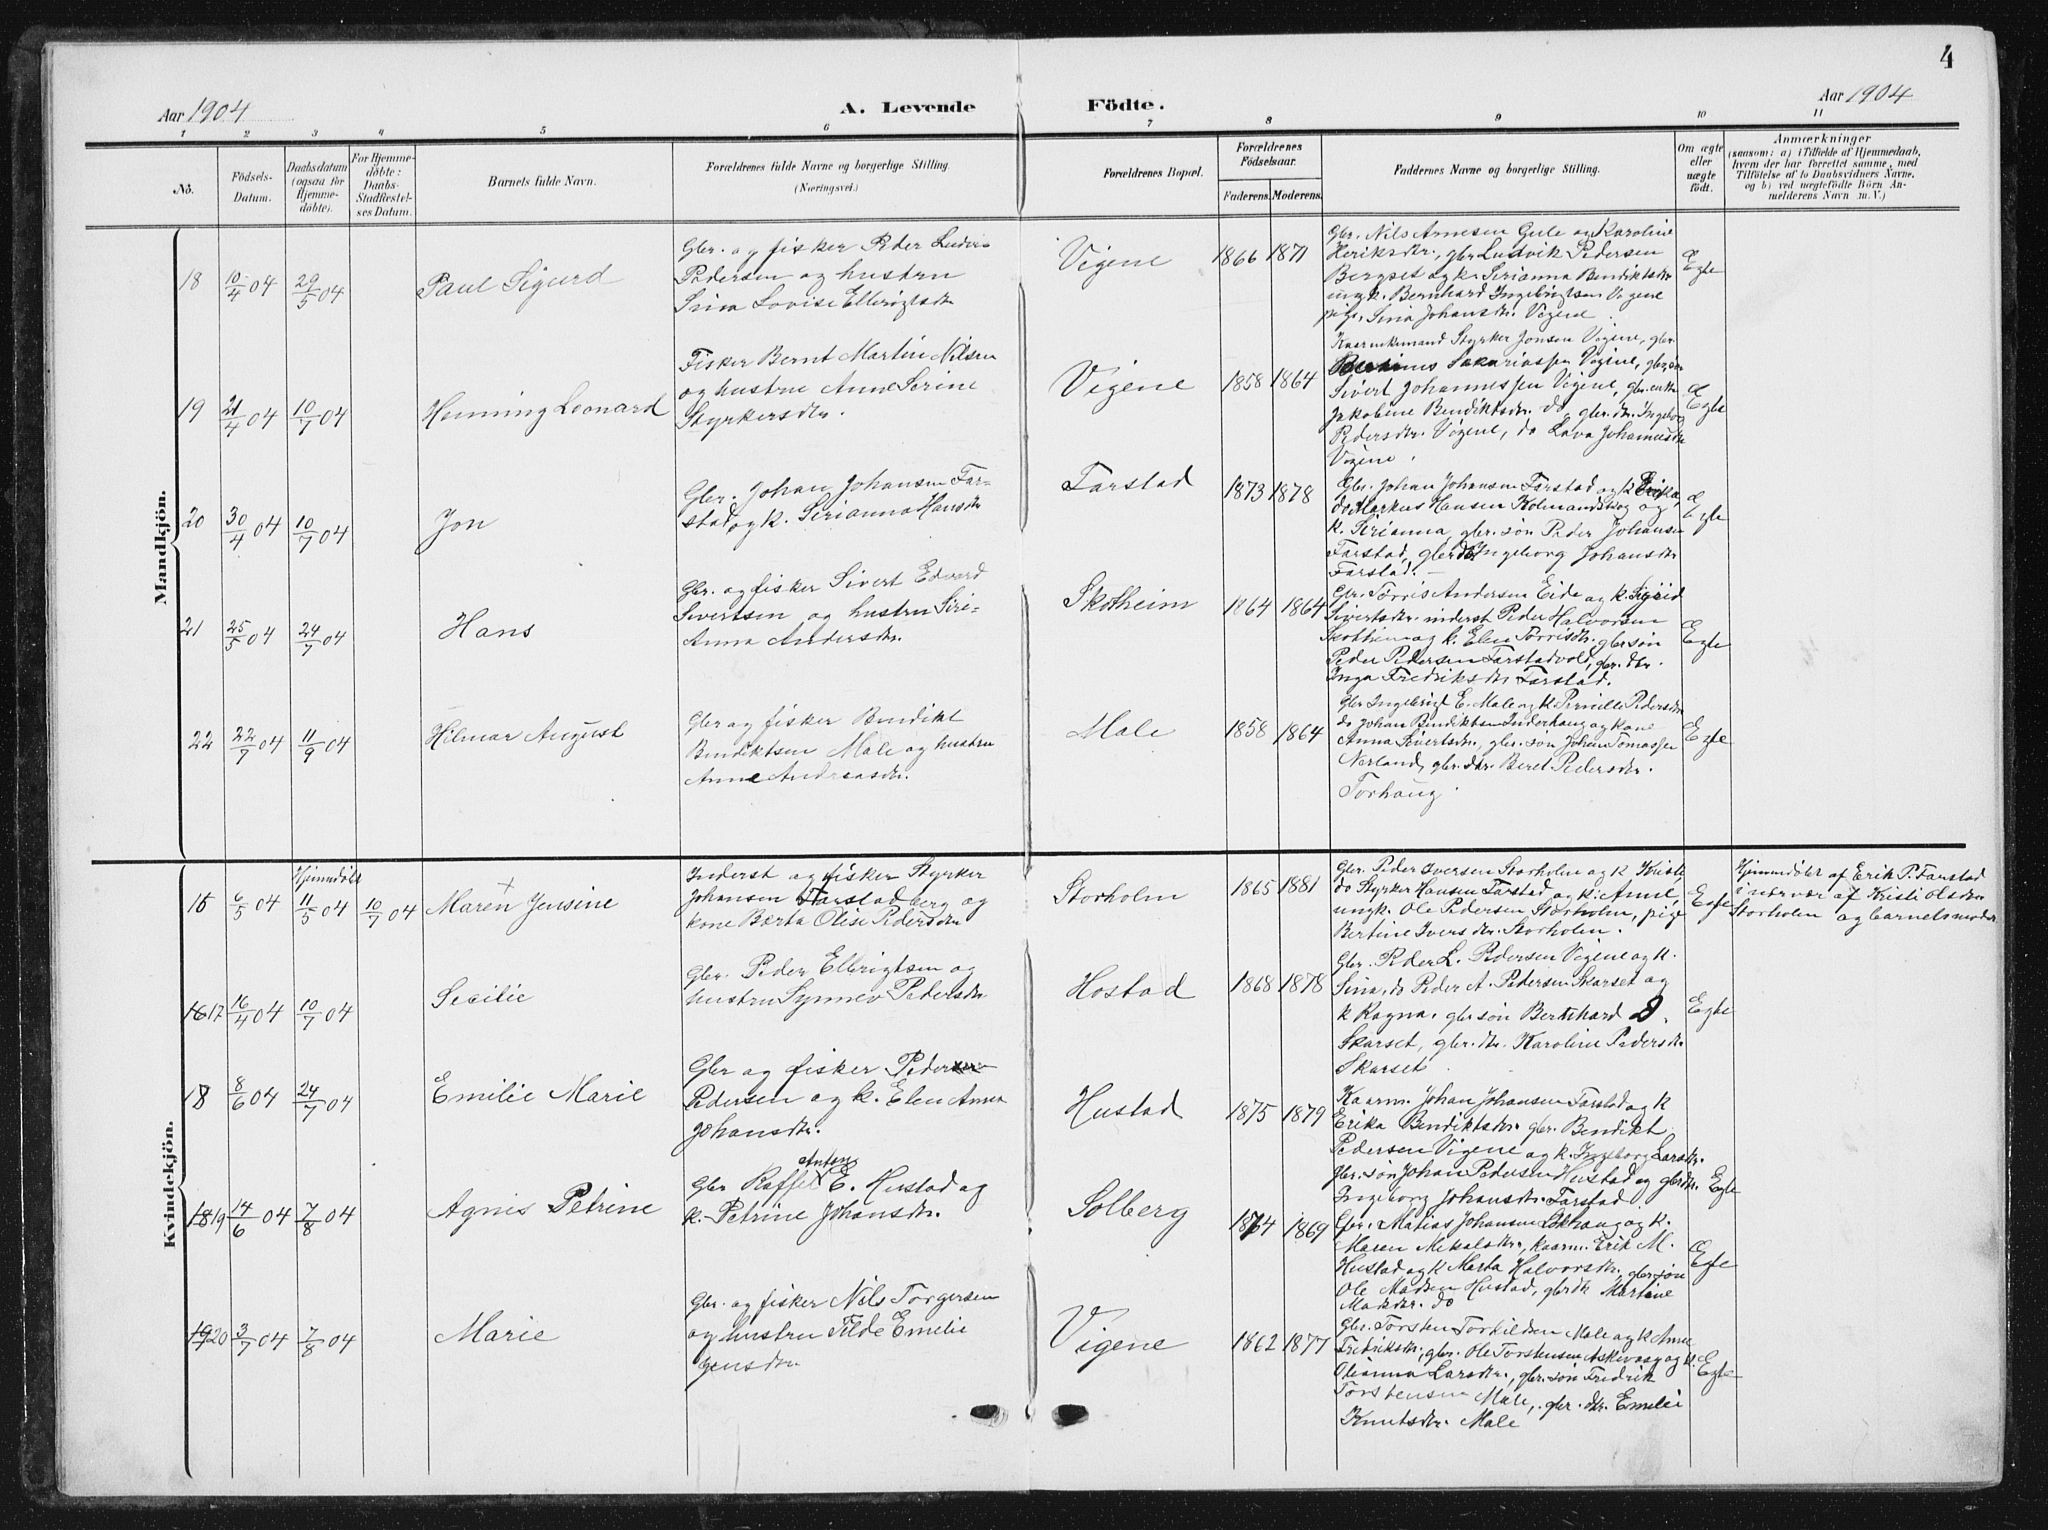 4
Aar 1904
A. Levende Födte.
Aar 1904
1 2 3 4 5 6 7 8 9 10 11
Nô.
Födsels-
Datum.
Daabsdatum
(ogsaa for
Hjemme-
döbte).
For Hjemme-
döbte:
Daabs-
Stadfæstel-
ses Datum.
Barnets fulde Navn.
Forældrenes fulde Navne og borgerlige Stilling.
(Næringsvei.)
Forældrenes Bopæl.
Forældrenes
Födselsaar.
Faderens. Moderens.
Faddernes Navne og borgerlige Stilling.
Om ægte
eller
uægte
födt.
Anmærkninger
(saasom: a) i Tilfælde af Hjemmedaab,
hvem der har forrettet samme, med
Tilföielse af to Daabsvidners Navne,
og b) ved uægtefödte Börn An-
melderens Navn m. V.)
Mandkjön.
18
10/4 04
29/5 04
Paul Sigurd
Gbr. og fisker Peder Ludvi-
Pedersen og hustru
Sina Lovise Ellevigtsdtr
Vigene
1866 1871
Gbr. Nils Arnesen Gule og Karoline
Heriksdtr., gbr Ludvik Pedersen
Bergset og k. Serianna Bendiktsdtr
ungk. Bernhard Ingebrigtsen Vigene
pige Sina Johansdtr. Vigene.
Ægte
19
21/4 04
10/7 04
Henning Leonard
Fisker Bernt Martin Nilsen
og hustru Anne Serine
Styrkersdtr.
Vigene
1858 1864
Kaarmkemand Styrker Jonsen Vigene, gbr.
Sakariassen Vigene, gbrsøn
Sivert Johannessen Vigene, gbr. enke
Jakobine Bendiktsdtr. do, gbr. dtr. Ingeborg
Pedersdtr. Vigene, do Lava Johannesdtr
Vigene.
Ægte
20
30/4 04
10/7 04
Jon
Gbr. Johan Johansen Far-
stad og k. Serianna Hansdtr
Farstad
1873 1878
Gbr. Johan Johansen Farstad og k Erika,
do Markus Hansen Kolmandskog og
k. Serianna, gbr. søn Peder Johansen
Farstad, gbrdtr Ingeborg Johansdtr
Farstad.
Ægte
21
25/5 04
24/7 04
Hans
Gbr. og fisker Sivert Edvard
Sivertsen og hustru Seri-
Anna Andersdtr.
Skotheim
1864 1864
Gbr. Torris Andersen Eide og k. Sigrid
Sivertsdtr. inderst Peder Halvorsen
Skotheim og k. Elen Torrisdtr. gbr søn
Peder Pedersen Farstadvold, gbr. dtr.
Inga Fredriksdtr Farstad.
Ægte
22
22/7 04
11/9 04
Hilmar August
Gbr og fisker Bendikt
Bendiktsen Male og hustru
Anne Andreasdtr.
Male
1858 1864
Gbr Ingebrigt E. Male og k Pernille Pedersdtr
do Johan Bendiktsen Inderhaug og kone
Anna Sivertsdtr., gbr. søn Johan Tomassen
Nerland, gbr. dtr. Beret Pedersdtr.
Torhaug.
Ægte
Kvindekjön.
15
6/5 04
Hjemmedöbt
11/5 04
10/7 04
Maren Jensine
Inderst og fisker Styrker
Johansen Farstadberg og
kone Berta Olise Pedersdtr
Storholm
1865 1881
Gbr. Peder Iversen Storholm og k Kristi
do Styrker Hansen Farstad og k. Anne,
ungk. Ole Pedersen Storholm, pige
Bertine Ivers dtr. Storholm.
Ægte
Hjemmedöbt af Erik P. Farstad
i nærvær af Kristi Olsdtr.
Storholm og barnets moder
16 17
16/4 04
10/7 04
Secilie
Gbr. Peder Ellevigtsen og
hustru Synnev Pedersdtr
Hostad
1868 1878
Gbr. Peder L. Pedersen Vigene og k.
Sina, do Peder A. Pedersen Skarset og
k Ragna. gbr søn Bernhard
Skarset, gbr. dtr. Karoline Pedersdtr.
Skarset
Ægte
18
8/6 04
24/7 04
Emilie Marie
Gbr og fisker Peder
Pedersen og k. Elen Anna
Johansdtr.
Hustad
1875 1879
Kaarm. Johan Johansen Farstad og k
Erika Bendiktsdtr. gbr. Bendikt
Pedersen Vigene og k. Ingeborg Larsdtr.
gbr. søn Johan Pedersen Hustad og gbrdtr.
Ingeborg Johansdtr. Farstad.
Ægte
18 19
14/6 04
7/8 04
Agnis Petrine
Anton
Gbr Raffel E. Hustad og
k. Petrine Johansdtr.
Solberg
1874 1869
Gbr. Matias Johansen og k.
Maren Mikalsdtr., kaarm. Erik M.
Hustad og k Marta Halvorsdtr., gbr søn
Ole Madsen Hustad, gbrdtr Martine
Madsdtr. do
Ægte
19 20
3/7 04
7/8 04
Marie
Gbr. og fisker Nils Torgersen
og hustru Tilde Emelie
Jensdtr.
Vigene
1862 1877
Gbr. Torsten Torkildsen Male og k Anne
Fredriksdtr., gbr. Ole Torstensen Askevaag og k.
Olianna Larsdtr., gbr. søn Fredrik
Torstensen Male, gbr. dtr. Emelie
Knutsdtr. Male
Ægte